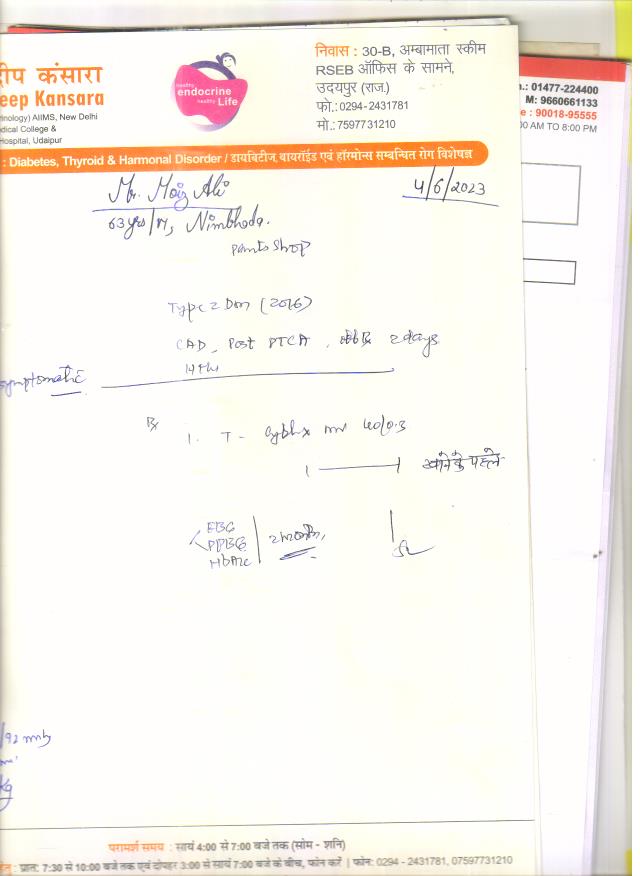 दीप कंसारा
eep Kansara
inology) AIIMS, New Delhi
dical College &
Hospital, Udaipur
healthy
endocrine
healthy Life
निवास : 30-B, अम्बामाता स्कीम
RSEB ऑफिस के सामने,
उदयपुर (राज.)
फो.:0294-2431781
मो.:7597731210
.: 01477-224400
M: 9660661133
e : 90018-95555
00 AM TO 8:00 PM
: Diabetes, Thyroid & Harmonal Disorder / डायबिटीज, थायरॉईड एवं हॉरमोन्स सम्बन्धित रोग विशेषज्ञ
Mr. Moiz Ali
4/6/2023
63 yrs/M, Nimbhoda.
Pants Shop
Type 2 Dm (2016)
CAD, Post PTCA, 2 days
HTN
symptomatic
Rx
1. T- mv 40/0.3
1 ——— 1 खाने के पहले
FBG
PPBG
HbA1c
2 months,
/92 mmHg
Kg
परामर्श समय : सायं 4:00 से 7:00 बजे तक (सोम - शनि)
प्रात: 7:30 से 10:00 बजे तक एवं दोपहर 3:00 से सायं 7:00 बजे के बीच, फोन करें | फोन: 0294 - 2431781, 07597731210